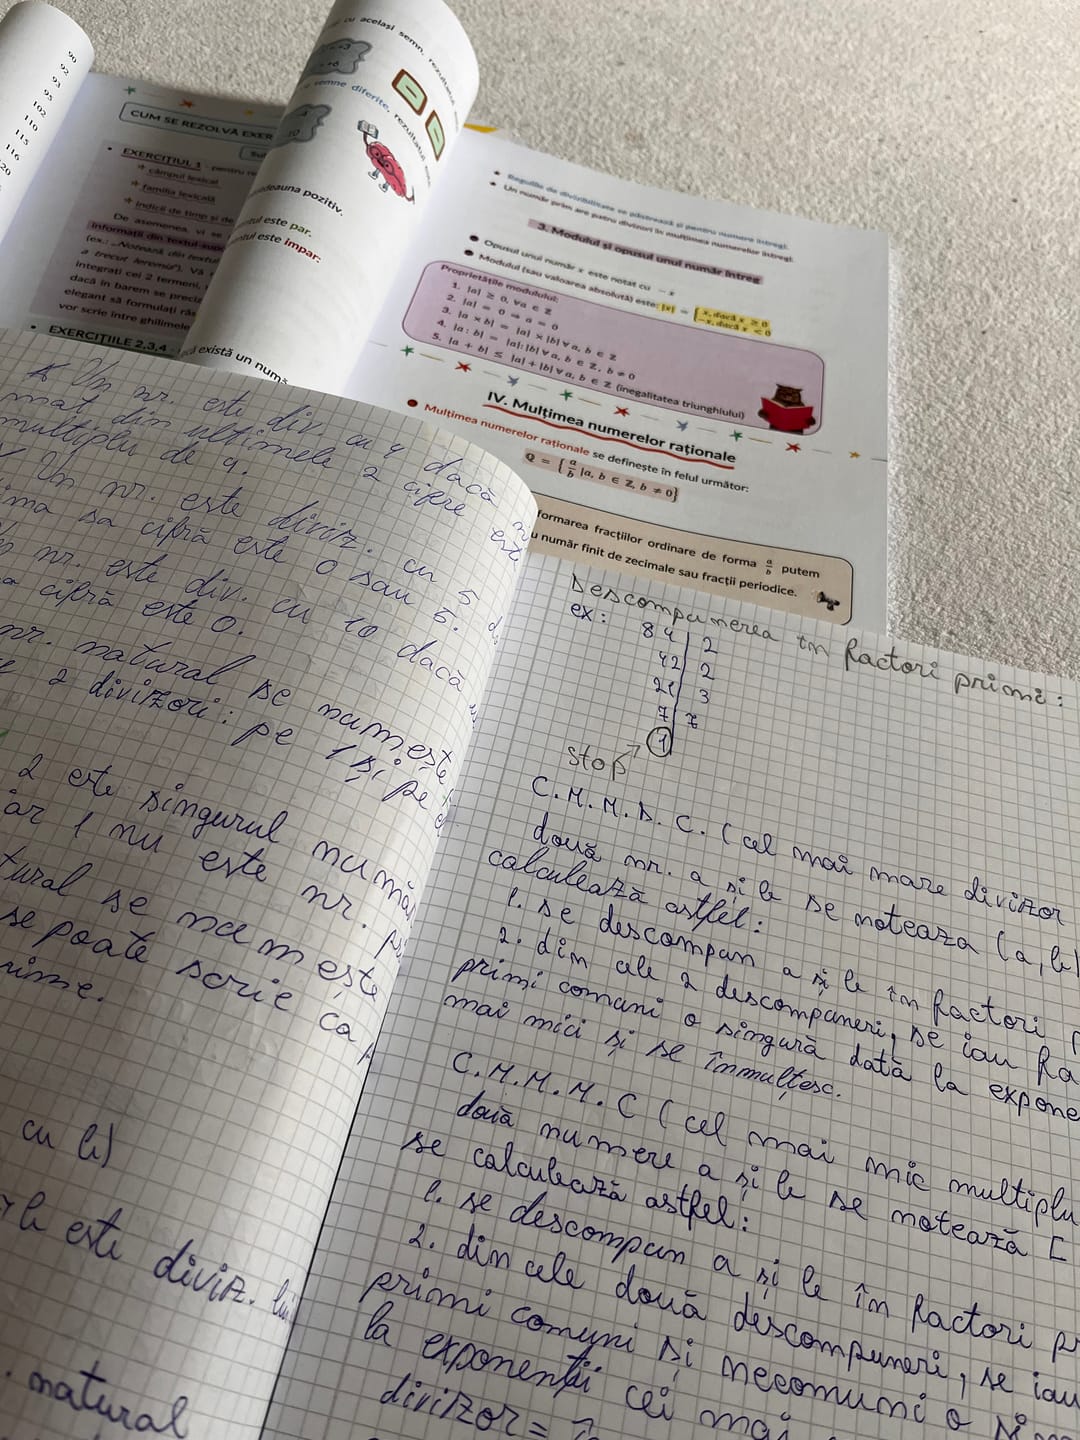 90
92
93
95
102
110
115
116
CUM SE REZOLVĂ EXER
EXERCIȚIUL 1 - pentru
câmpul lexical
familia lexicală
indicii de timp și de
De asemenea, vi se
informații din textul
(ex.: „Notează din textul
a trecut
integrați cei 2 termeni,
dacă în barem se
elegant să formulați
vor scrie între ghilimele
EXERCIȚIILE 2,3,4
cu același semn, rezultatul
semne diferite, rezultatul
deauna pozitiv.
ntul este par.
ntul este impar:
există un num
Regulile de divizibilitate se păstrează și pentru numere întregi.
Un număr prim are patru divizori în mulțimea numerelor întregi.
3. Modulul și opusul unui număr întreg
Opusul unui număr x este notat cu - x
Modulul (sau valoarea absolută) este: |x| = { x, dacă x ≥ 0
-x, dacă x < 0
Proprietățile modulului:
1. |a| ≥ 0, ∀a ∈ Z
2. |a| = 0 ⇒ a = 0
3. |a × b| = |a| × |b| ∀ a, b ∈ Z
4. |a : b| = |a|:|b| ∀ a, b ∈ Z, b ≠ 0
5. |a + b| ≤ |a| + |b| ∀ a, b ∈ Z (inegalitatea triunghiului)
IV. Mulțimea numerelor raționale
Mulțimea numerelor raționale se definește în felul următor:
Q = { a/b | a, b ∈ Z, b ≠ 0}
formarea fracțiilor ordinare de forma a/b putem
u număr finit de zecimale sau fracții periodice.
Un nr. este div. cu 4 dacă
mat din ultimele 2 cifre este
multiplu de 4.
Un nr. este diviz. cu 5
ima sa cifră este 0 sau 5.
nr. este div. cu 10 dacă
a cifră este 0.
nr. natural se numește
2 divizori: pe 1 și pe
2 este singurul număr
ar 1 nu este nr.
tural se numește
se poate scrie ca
rime.
cu b)
b este diviz.
natural
Descompunerea în factori primi:
ex: 84 | 2
42 | 2
21 | 3
7 | 7
1
Stop
C.M.M.D.C. (cel mai mare divizor
două nr. a și b se noteaza (a,b)
calculează astfel:
1. se descompun a și b în factori
2. din cele 2 descompuneri, se iau
primi comuni o singură dată la expone
mai mici și se înmulțesc.
C.M.M.M.C (cel mai mic multiplu
două numere a și b se notează [
se calculează astfel:
1. se descompun a și b în factori pr
2. din cele două descompuneri, se iau
primi comuni și necomuni o
la exponenții cei mai
divizor =